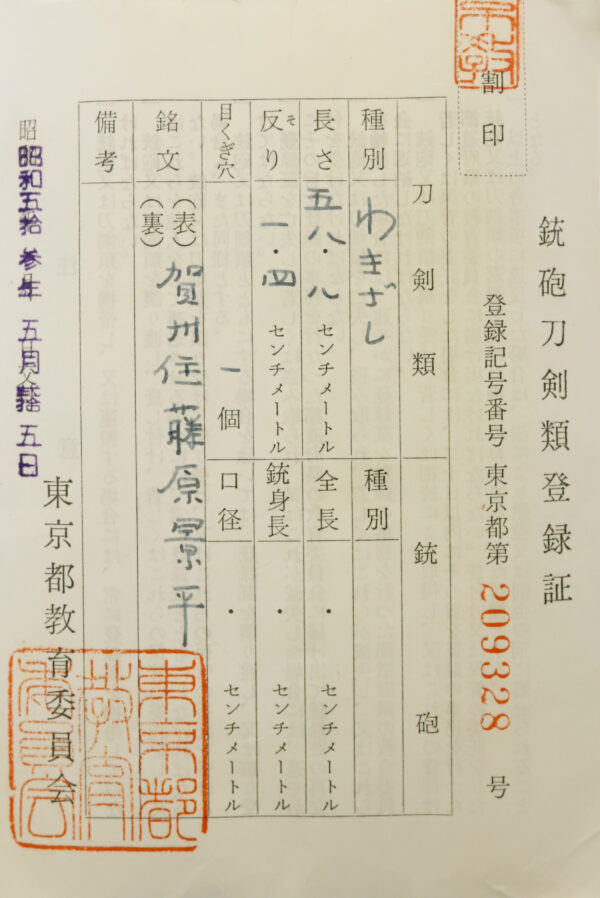 銃砲刀剣類登録証
割印
登録記号番号 東京都第 209328 号
刀剣類
銃砲
種別 わきざし
長さ 五八・八 センチメートル
反り 一・四 センチメートル
そ
目くぎ穴 一個
銘文 (表) 賀州住藤原景平
(裏)
備考
種別
全長 ・ センチメートル
銃身長 ・ センチメートル
口径 ・ センチメートル
昭和五拾参年 五月拾五日
東京都教育委員会
東京都
教育
委員会